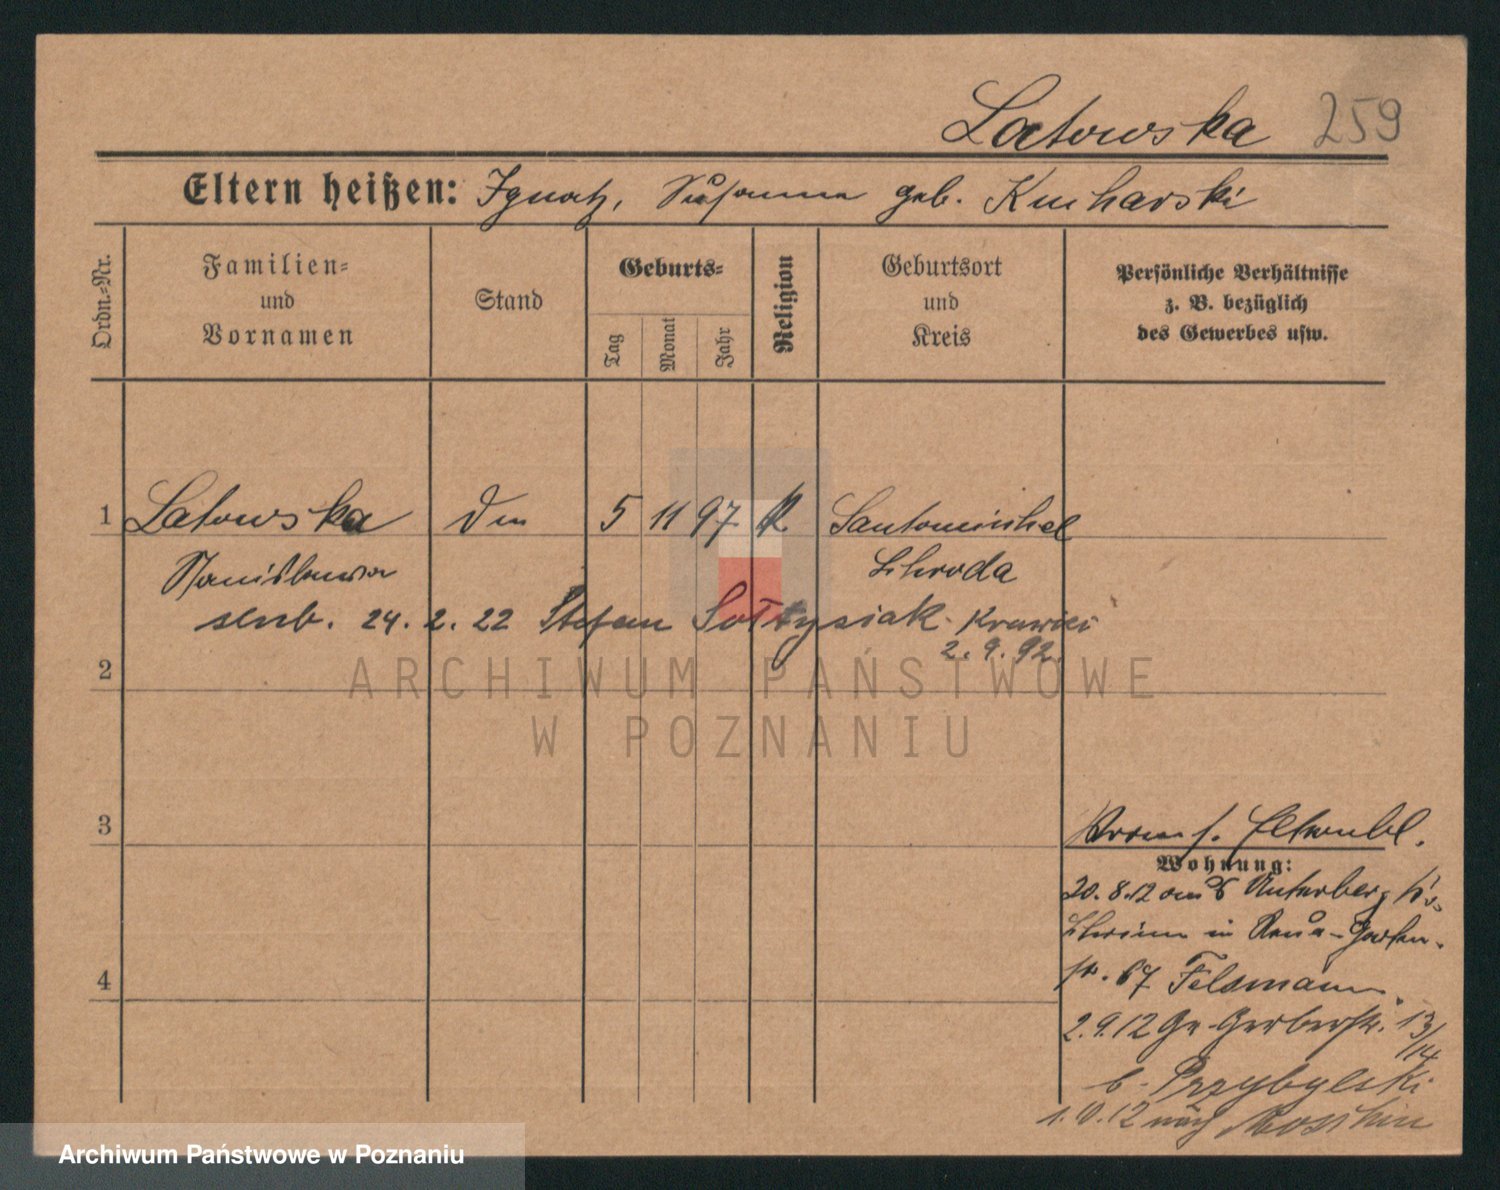 Latowska 259
Eltern heißen: Ignatz, Susanna geb. Kucharski
Ordn.-Nr.
Familien-
und
Vornamen
Stand
Geburts-
Tag
Monat
Jahr
Religion
Geburtsort
und
Kreis
Persönliche Verhältnisse
z. B. bezüglich
des Gewerbes usw.
1 Latowska 5 11 97 K Santomischel
Stanislawa Schroda
24. 2. 22 Stefan Sołtysiak Krawiec
2. 9. 92
2
ARCHIWUM PAŃSTWOWE
W POZNANIU
3
Wohnung:
20. 8. 12 aus Unterberg Kr.
Schrimm in Posen-Garten-
str. 67 Felsmann
2. 9. 12 Gr. Gerberstr. 13/14
b. Przybylski
12 nach Moschin
4
Archiwum Państwowe w Poznaniu